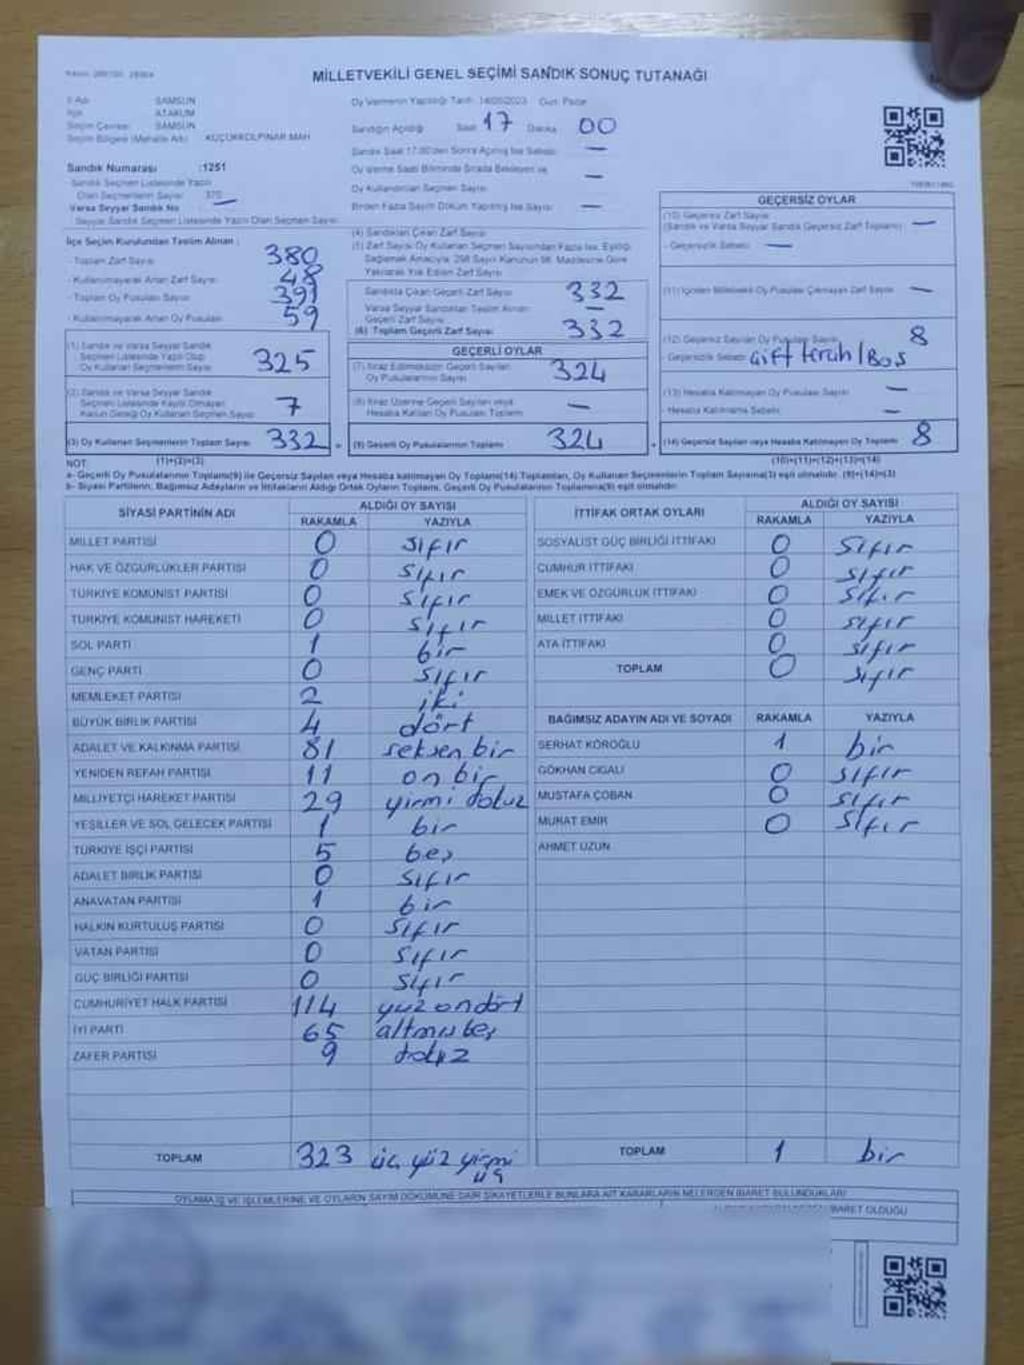 MİLLETVEKİLİ GENEL SEÇİMİ SANDIK SONUÇ TUTANAĞI
İl Adı SAMSUN
İlçe ATAKUM
Seçim Çevresi SAMSUN
Seçim Bölgesi (Mahalle Adı) KÜÇÜKKOLPINAR MAH
Sandık Numarası :1251
Sandık Seçmen Listesinde Yazılı
Olan Seçmenlerin Sayısı 370
Varsa Seyyar Sandık No
Seyyar Sandık Seçmen Listesinde Yazılı Olan Seçmen Sayısı
Oy Vermenin Yapıldığı Tarih 14/05/2023 Gün: Pazar
Sandığın Açıldığı Saat 17 Dakika 00
Sandık Saat 17.00'den Sonra Açılmış İse Sebebi —
Oy Verme Saati Bitiminde Sırada Bekleyen ve
Oy Kullandırılan Seçmen Sayısı —
Birden Fazla Sayım Döküm Yapılmış İse Sayısı —
İlçe Seçim Kurulundan Teslim Alınan :
- Toplam Zarf Sayısı 380
- Kullanılmayarak Artan Zarf Sayısı 48
- Toplam Oy Pusulası Sayısı 391
- Kullanılmayarak Artan Oy Pusulası 59
(1) Sandık ve Varsa Seyyar Sandık
Seçmen Listesinde Yazılı Olup
Oy Kullanan Seçmenlerin Sayısı 325
(2) Sandık ve Varsa Seyyar Sandık
Seçmen Listesinde Kayıtlı Olmayan
Kanun Gereği Oy Kullanan Seçmen Sayısı 7
(3) Oy Kullanan Seçmenlerin Toplam Sayısı 332
(1)+(2)=(3)
(4) Sandıktan Çıkan Zarf Sayısı
(5) Zarf Sayısı Oy Kullanan Seçmen Sayısından Fazla İse, Eşitliği
Sağlamak Amacıyla, 298 Sayılı Kanunun 98. Maddesine Göre
Yakılarak Yok Edilen Zarf Sayısı
Sandıkta Çıkan Geçerli Zarf Sayısı 332
Varsa Seyyar Sandıktan Teslim Alınan
Geçerli Zarf Sayısı —
(6) Toplam Geçerli Zarf Sayısı 332
GEÇERLİ OYLAR
(7) İtiraz Edilmeksizin Geçerli Sayılan
Oy Pusulalarının Sayısı 324
(8) İtiraz Üzerine Geçerli Sayılan veya
Hesaba Katılan Oy Pusulası Toplamı —
(9) Geçerli Oy Pusulalarının Toplamı 324
GEÇERSİZ OYLAR
(10) Geçersiz Zarf Sayısı
(Sandık ve Varsa Seyyar Sandık Geçersiz Zarf Toplamı) —
- Geçersizlik Sebebi —
(11) İçinden Milletvekili Oy Pusulası Çıkmayan Zarf Sayısı —
(12) Geçersiz Sayılan Oy Pusulası Sayısı 8
- Geçersizlik Sebebi Çift tercih / Boş
(13) Hesaba Katılmayan Oy Pusulası Sayısı —
- Hesaba Katılmama Sebebi —
(14) Geçersiz Sayılan veya Hesaba Katılmayan Oy Toplamı 8
(10)+(11)+(12)+(13)=(14)
NOT:
a- Geçerli Oy Pusulalarının Toplamı(9) ile Geçersiz Sayılan veya Hesaba katılmayan Oy Toplamı(14) Toplamları, Oy Kullanan Seçmenlerin Toplam Sayısına(3) eşit olmalıdır. (9)+(14)=(3)
b- Siyasi Partilerin, Bağımsız Adayların ve İttifakların Aldığı Ortak Oyların Toplamı, Geçerli Oy Pusulalarının Toplamına(9) eşit olmalıdır.
SİYASİ PARTİNİN ADI ALDIĞI OY SAYISI
RAKAMLA YAZIYLA
MİLLET PARTİSİ 0 sıfır
HAK VE ÖZGÜRLÜKLER PARTİSİ 0 sıfır
TÜRKİYE KOMÜNİST PARTİSİ 0 sıfır
TÜRKİYE KOMÜNİST HAREKETİ 0 sıfır
SOL PARTİ 1 bir
GENÇ PARTİ 0 sıfır
MEMLEKET PARTİSİ 2 iki
BÜYÜK BİRLİK PARTİSİ 4 dört
ADALET VE KALKINMA PARTİSİ 81 seksen bir
YENİDEN REFAH PARTİSİ 11 on bir
MİLLİYETÇİ HAREKET PARTİSİ 29 yirmi dokuz
YEŞİLLER VE SOL GELECEK PARTİSİ 1 bir
TÜRKİYE İŞÇİ PARTİSİ 5 beş
ADALET BİRLİK PARTİSİ 0 sıfır
ANAVATAN PARTİSİ 1 bir
HALKIN KURTULUŞ PARTİSİ 0 sıfır
VATAN PARTİSİ 0 sıfır
GÜÇ BİRLİĞİ PARTİSİ 0 sıfır
CUMHURİYET HALK PARTİSİ 114 yüz ondört
İYİ PARTİ 65 altmış beş
ZAFER PARTİSİ 9 dokuz
TOPLAM 323 üç yüz yirmi
üç
İTTİFAK ORTAK OYLARI ALDIĞI OY SAYISI
RAKAMLA YAZIYLA
SOSYALİST GÜÇ BİRLİĞİ İTTİFAKI 0 sıfır
CUMHUR İTTİFAKI 0 sıfır
EMEK VE ÖZGÜRLÜK İTTİFAKI 0 sıfır
MİLLET İTTİFAKI 0 sıfır
ATA İTTİFAKI 0 sıfır
TOPLAM 0 sıfır
BAĞIMSIZ ADAYIN ADI VE SOYADI RAKAMLA YAZIYLA
SERHAT KÖROĞLU 1 bir
GÖKHAN CIGALI 0 sıfır
MUSTAFA ÇOBAN 0 sıfır
MURAT EMİR 0 sıfır
AHMET UZUN
TOPLAM 1 bir
OYLAMA İŞ VE İŞLEMLERİNE VE OYLARIN SAYIM DÖKÜMÜNE DAİR ŞİKAYETLERLE BUNLARA AİT KARARLARIN NELERDEN İBARET BULUNDUKLARI
İBARET OLDUĞU